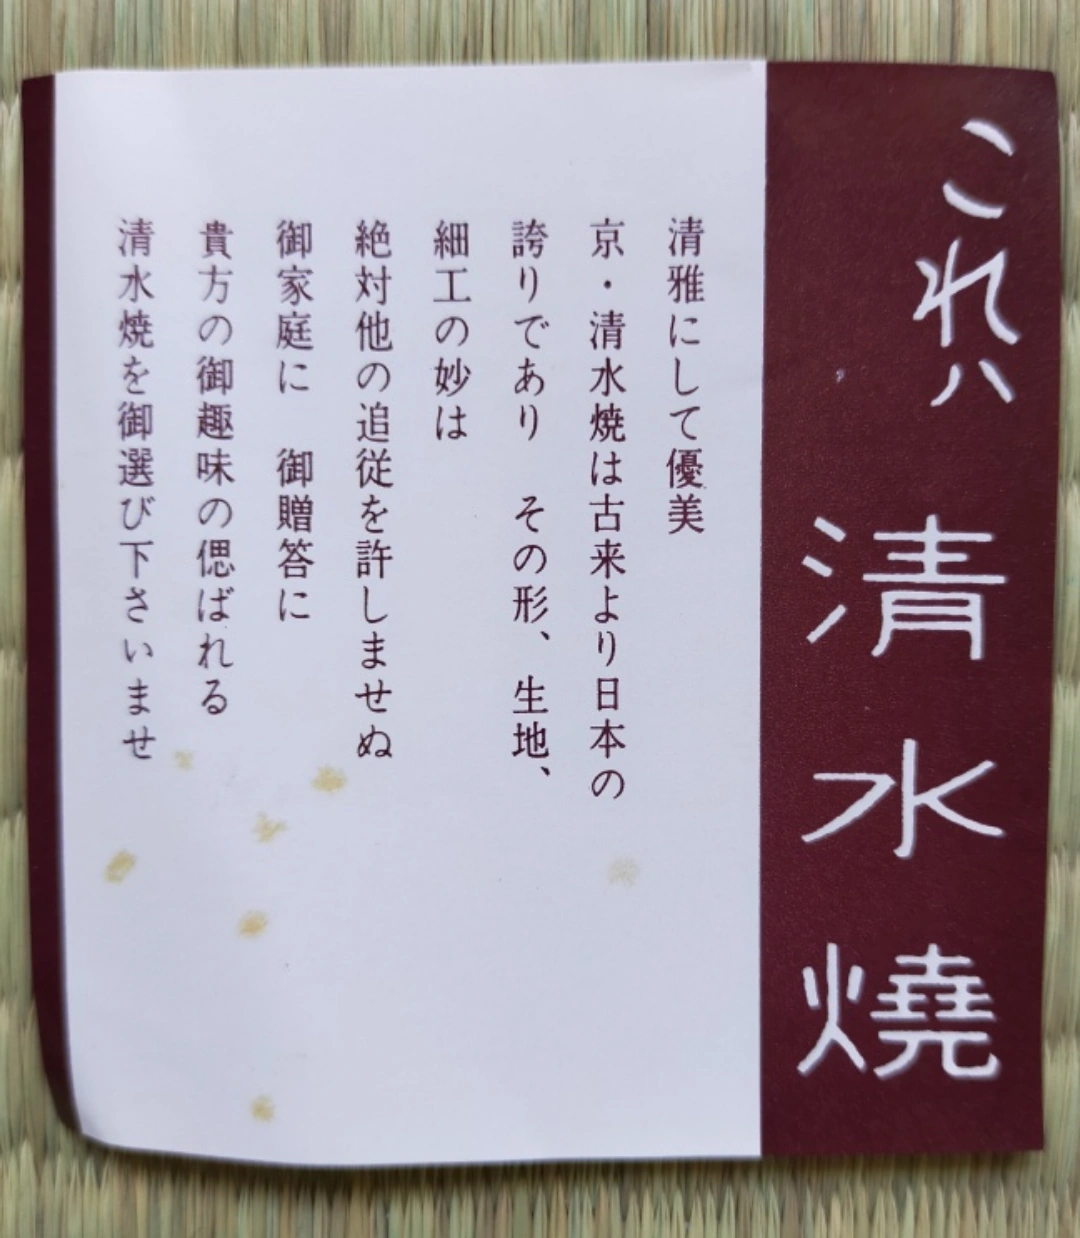 これハ 清水燒
清雅にして優美
京・清水焼は古来より日本の
誇りであり　その形、生地、
細工の妙は
絶対他の追従を許しませぬ
御家庭に　御贈答に
貴方の御趣味の偲ばれる
清水焼を御選び下さいませ